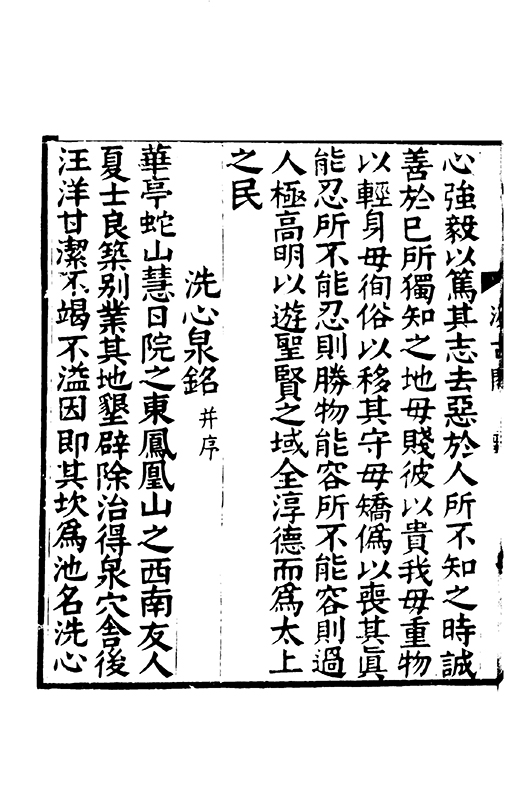 心強毅以篤其志去惡於人所不知之時誠
善於已所獨知之地毋賤彼以貴我毋重物
以輕身毋徇俗以移其守毋矯僞以喪其眞
能忍所不能忍則勝物能容所不能容則過
人極高明以遊聖賢之域全淳德而爲太上
之民
洗心泉銘 并序
華亭蛇山慧日院之東鳳凰山之西南友人
夏士良築别業其地墾辟除治得泉穴舎後
汪洋甘潔不竭不溢因即其坎爲池名洗心